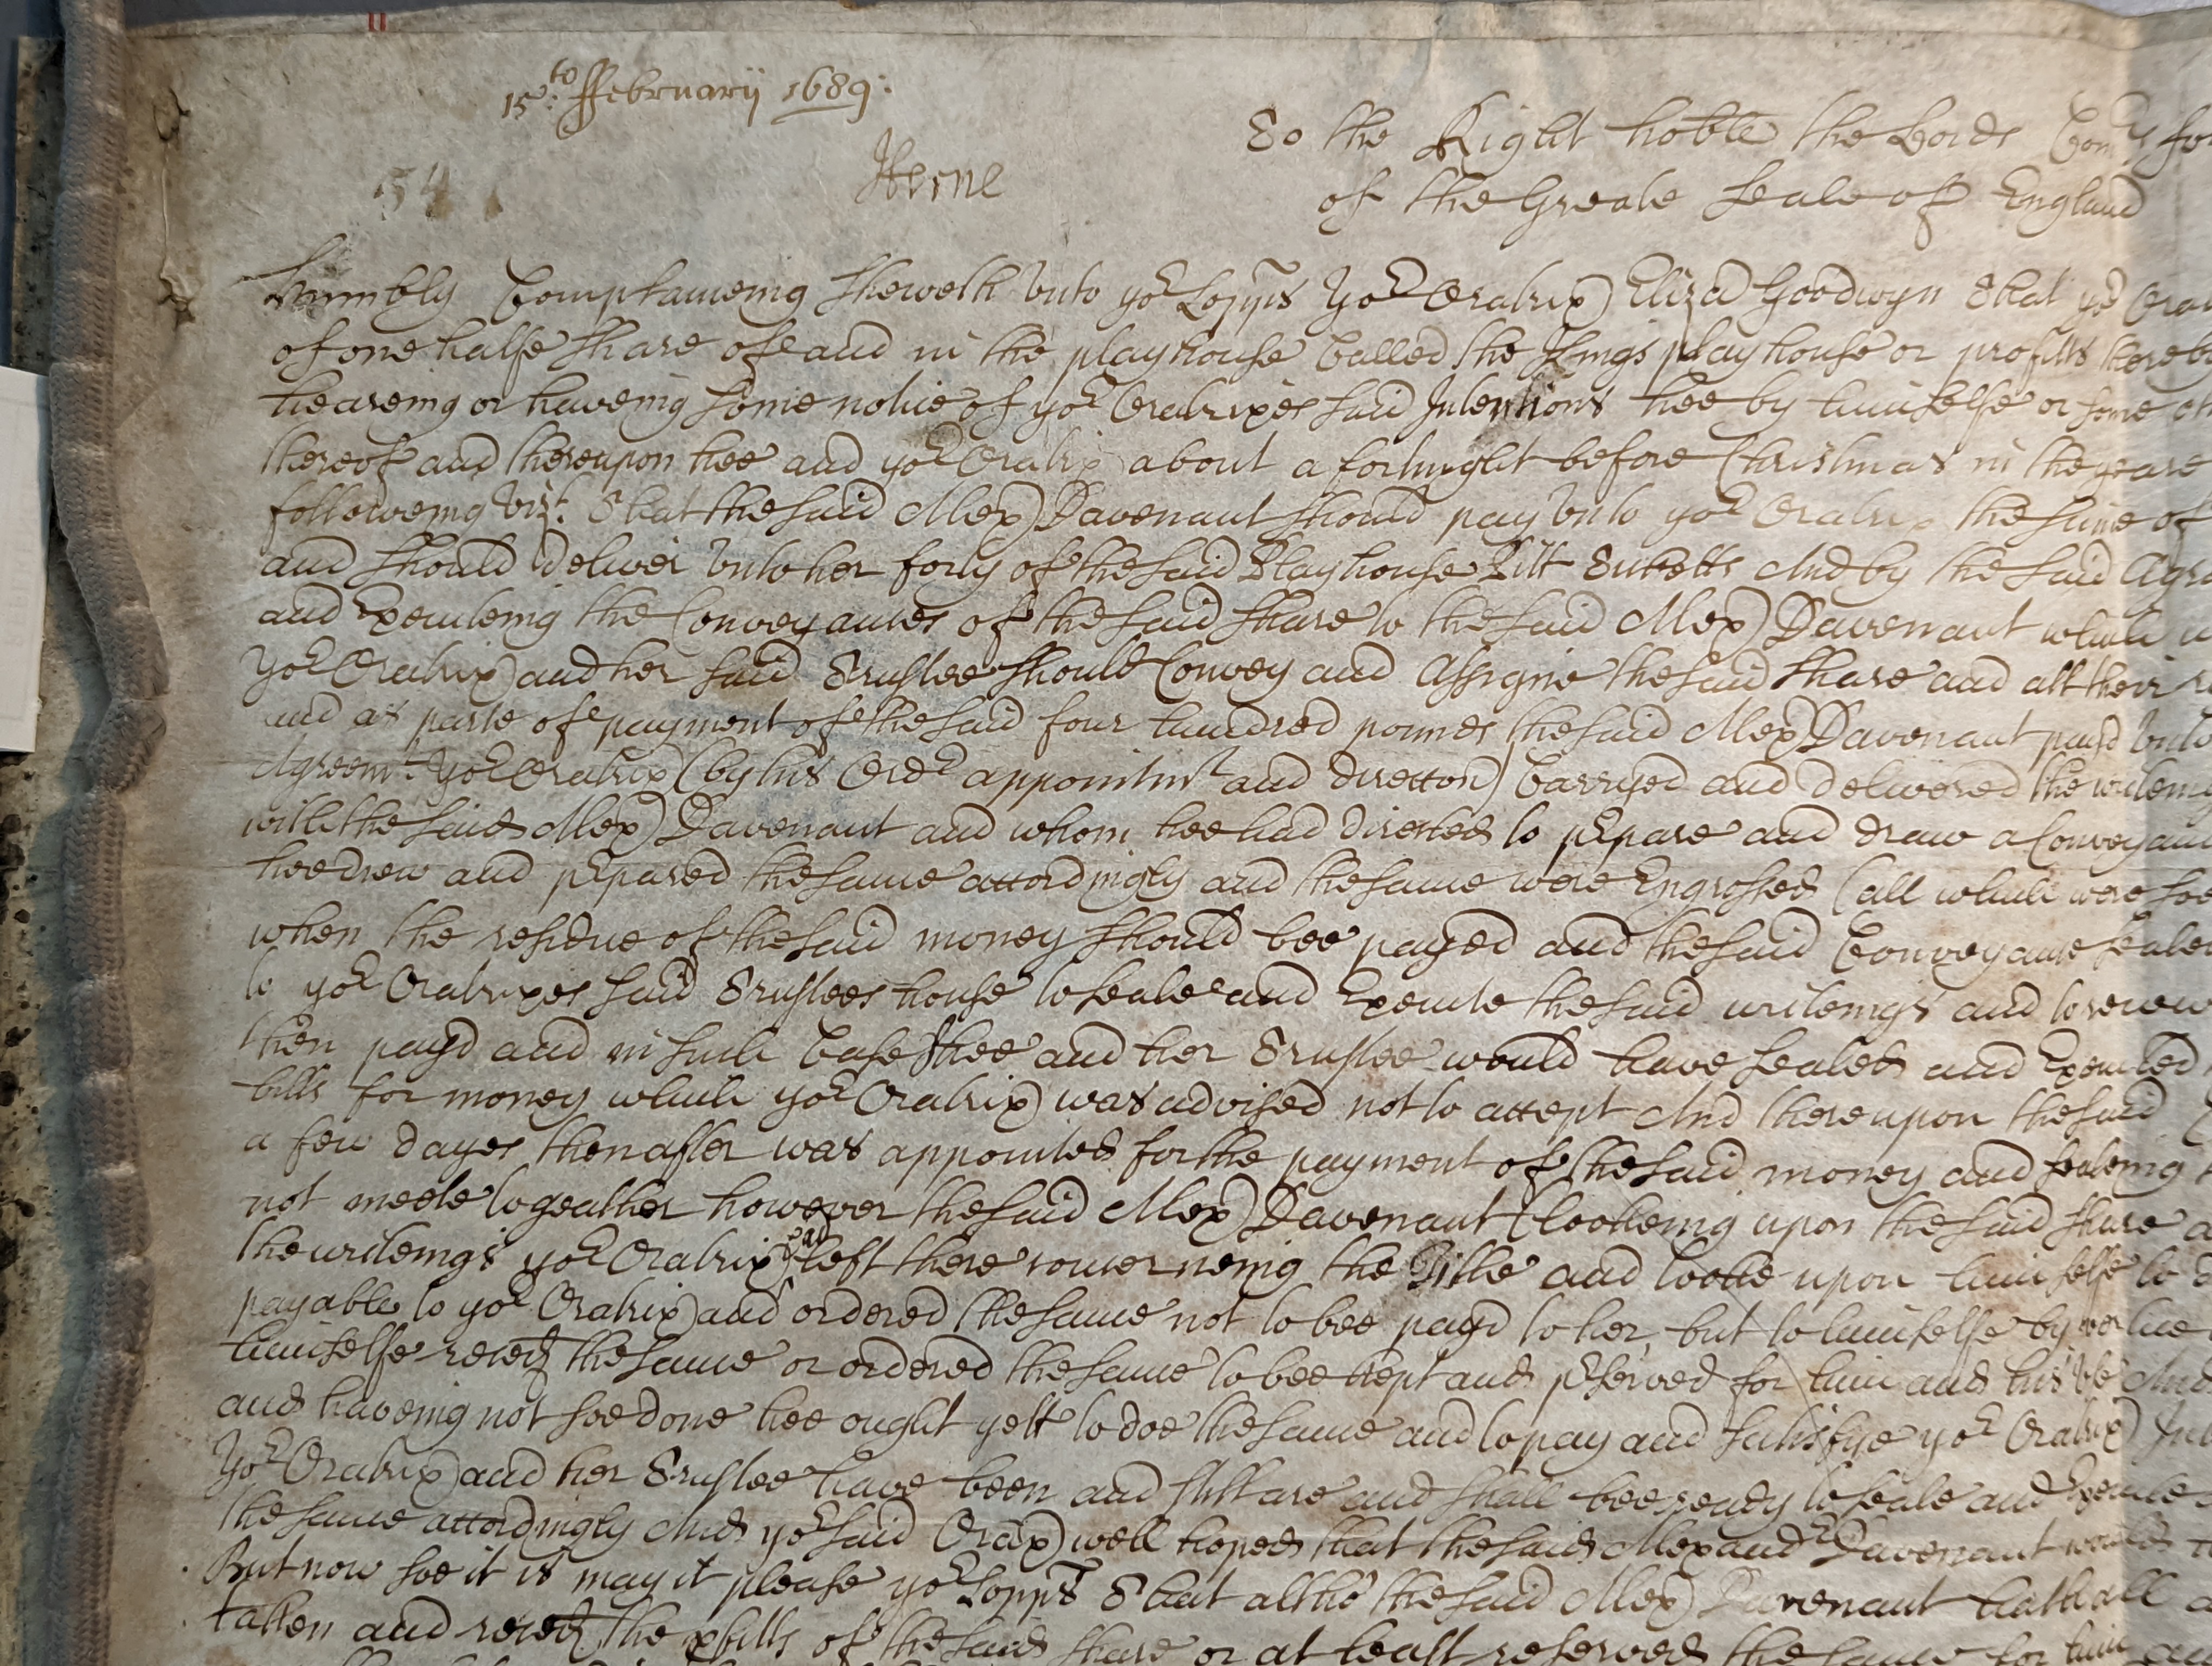 15to ffebruarij 1689:
Herne
54
To the Right hoble the Lords Comrs for
of the Greate Seale of England
Humbly Complaineing sheweth unto yor Lopps Yor Oratrix Eliza Goodwyn That yor Ora
of one halfe share of and in the playhouse Called the Kings playhouse or profitts thereby
heareing or haveing some notice of yor Oratrixes said Intentions hee by himselfe or some oth
thereof and thereupon hee and yor Oratrix about a fortnight before Christmas in the yeare
followeing vizt. That the said Alex Davenant should pay unto yor Oratrix the sume of
and should deliver unto her forty of the said Playhouse Pitt Ticketts And by the said Agre
and Executeing the Conveyances of the said share to the said Alex Davenant which w
Yor Oratrix and her said Trustee should Convey and Assigne the said share and all their
and as parte of payment of the said four hundred pounds the said Alex Davenant payd unto
Agreemt Yor Oratrix (by his Ordr appointmt and direccon) Carryed and delivered the writeing
with the said Alex Davenant and whom hee had directed to prpare and draw a Conveyanc
hee drew and prpared the same accordingly and the same were Engrossed (all which were soe
when the residue of the said money should bee payed and the said Conveyance sealed
to yor Oratrixes said Trustees house to seale and Execute the said writeings and to receive
then payd and in such Case shee and her Trustee would have sealed and Executed
bills for money which yor Oratrix was advised not to accept And thereupon the said
a few dayes then after was appointed for the payment of the said money and sealeing
not meete togeather however the said Alex Davenant (lookeing upon the said share a
the writeings yor Oratrix had left there concerneing the Title and looke upon himselfe to
payable to yor Oratrix and ordered the same not to bee payd to her, but to himselfe by vertue
himselfe reced the same or ordered the same to bee kept and prserved for him and his use And
and haveing not soe done hee ought yett to doe the same and to pay and satisfye yor Oratrix
Yor Oratrix and her Trustee have been and still are and shall bee ready to seale and Execute
the same accordingly And yor said Orax well hoped that the said Alexandr Davenant would
But now soe it is may it please yor Lopps That altho the said Alex Davenant hath all
taken and reced the pfitts of the said share or at least reserved the same for him